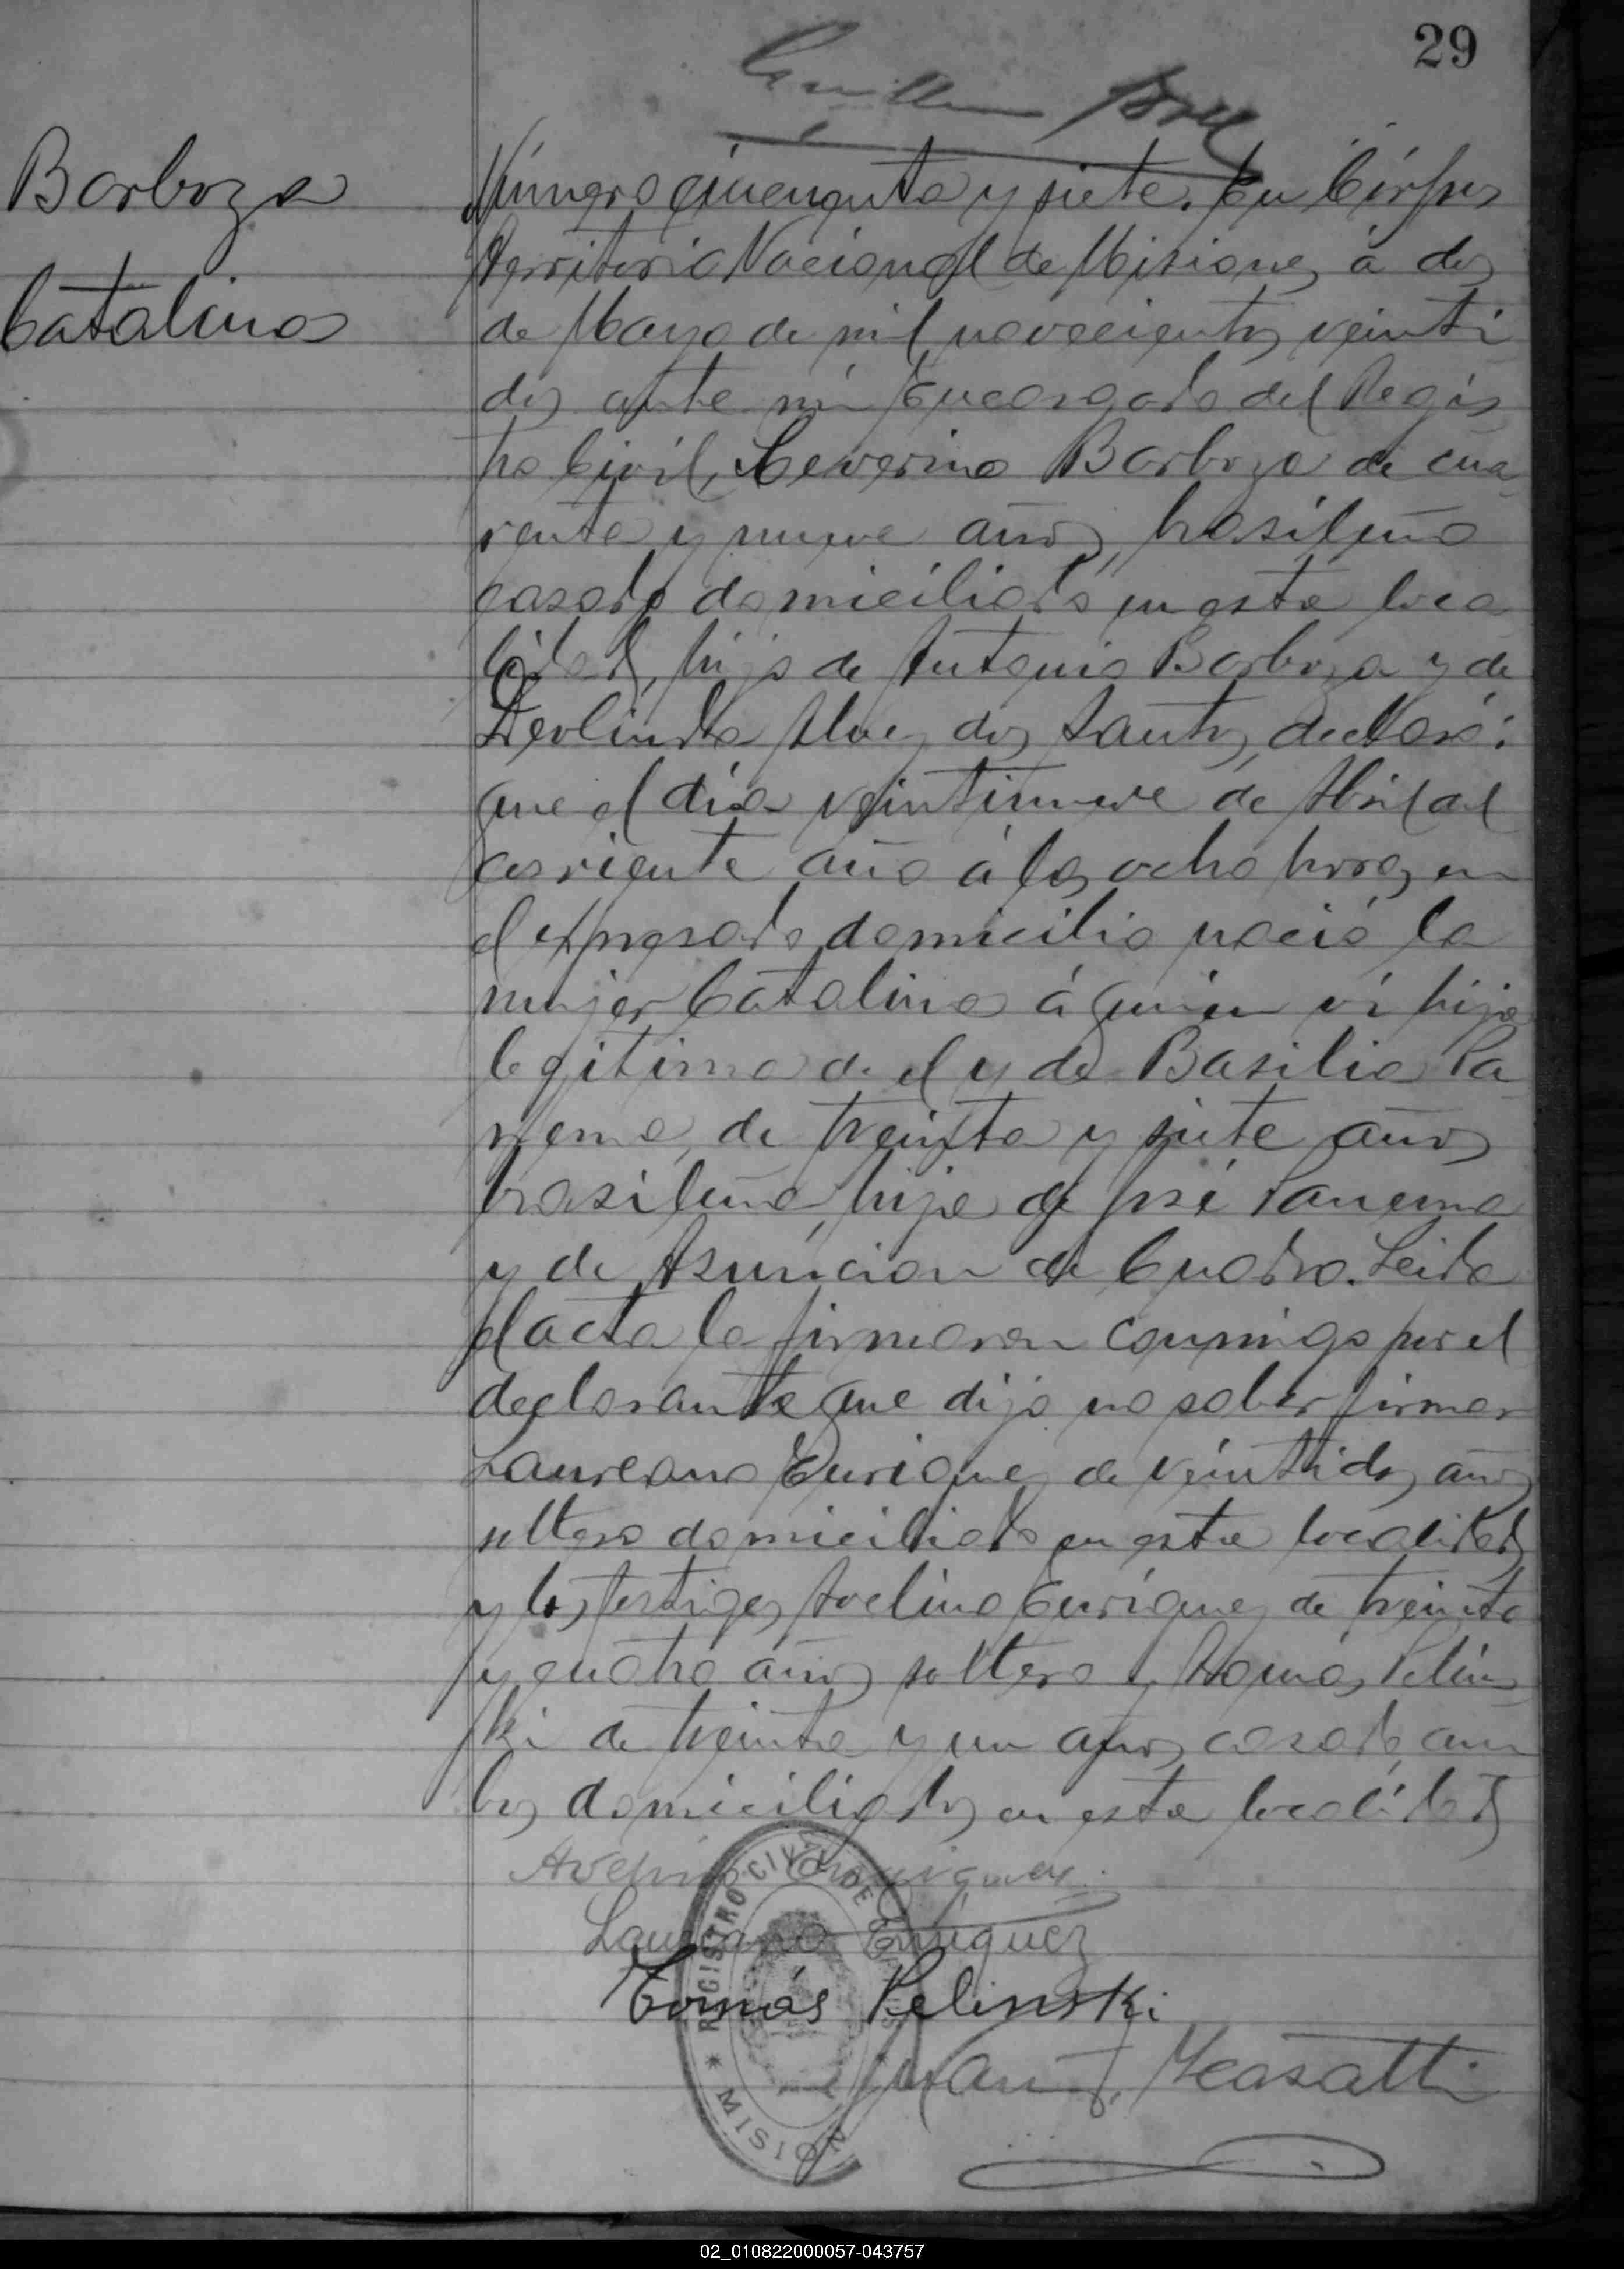 29
Barboza
Catalina
Número cincuenta y siete. En Córpus
Territorio Nacional de Misiones á dos
de Mayo de mil novecientos veinti
dos ante mí Encargado del Regis
tro Civil, Severino Barboza de cua
renta y nueve años, brasileño
casado domiciliado en esta loca
lidad, hijo de Antonio Barboza y de
Deolinda Alves dos Santos, declaró:
que el día veintinueve de Abril del
corriente año á las ocho horas en
el expresado domicilio nació la
mujer Catalina á quien ví hija
legitima de el y de Basilia Pa
nema, de treinta y siete años
brasileña, hija de José Panema
y de Asuncion de Cuadro. Leida
el acta la firmaron conmigo por el
declarante que dijo no saber firmar
Laureano Enriquez de veintidos años
soltero domiciliado en esta localidad,
y los testigos Avelino Enriquez de treinta
y cuatro años soltero y Tomás Pelins
ki de treinta y un años, casado, am
bos domiciliados en esta localidad
Avelino Enriquez
Laureano Enriquez
Tomás Pelinski
REGISTRO CIVIL DE
MISIONES
02_010822000057-043757